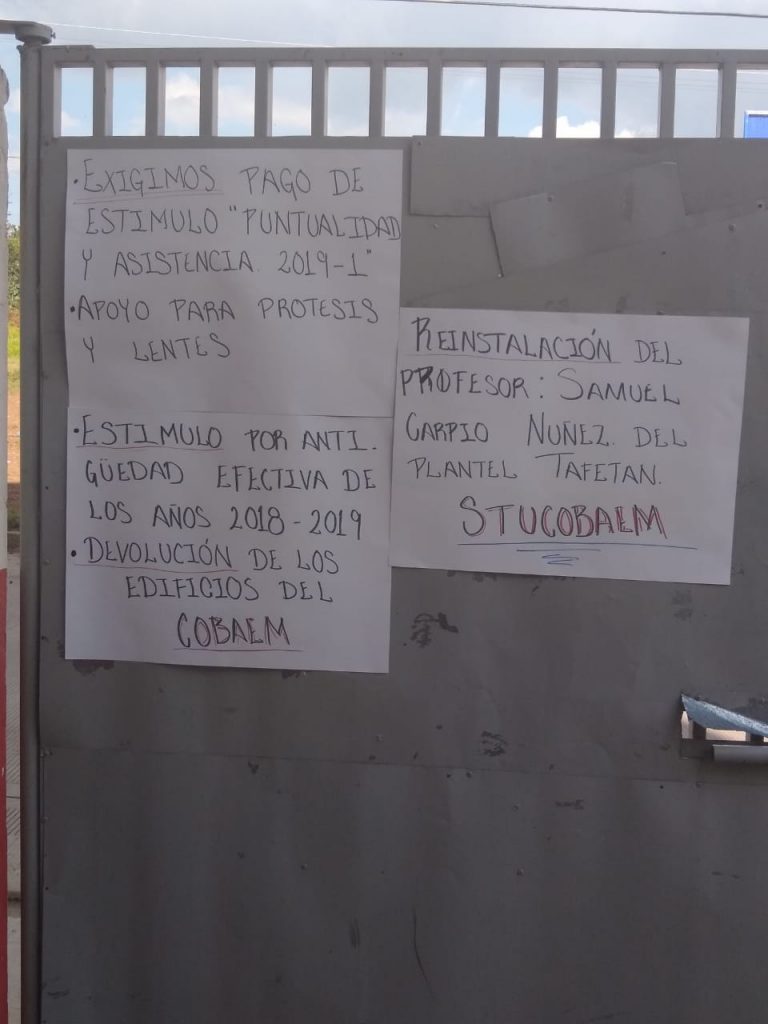 · EXIGIMOS PAGO DE
ESTIMULO "PUNTUALIDAD
Y ASISTENCIA. 2019-1"
· APOYO PARA PROTESIS
Y LENTES
· ESTIMULO POR ANTI-
GÜEDAD EFECTIVA DE
LOS AÑOS 2018-2019
· DEVOLUCIÓN DE LOS
EDIFICIOS DEL
COBAEM
REINSTALACIÓN DEL
PROFESOR: SAMUEL
CARPIO NUÑEZ. DEL
PLANTEL TAFETAN.
STUCOBAEM